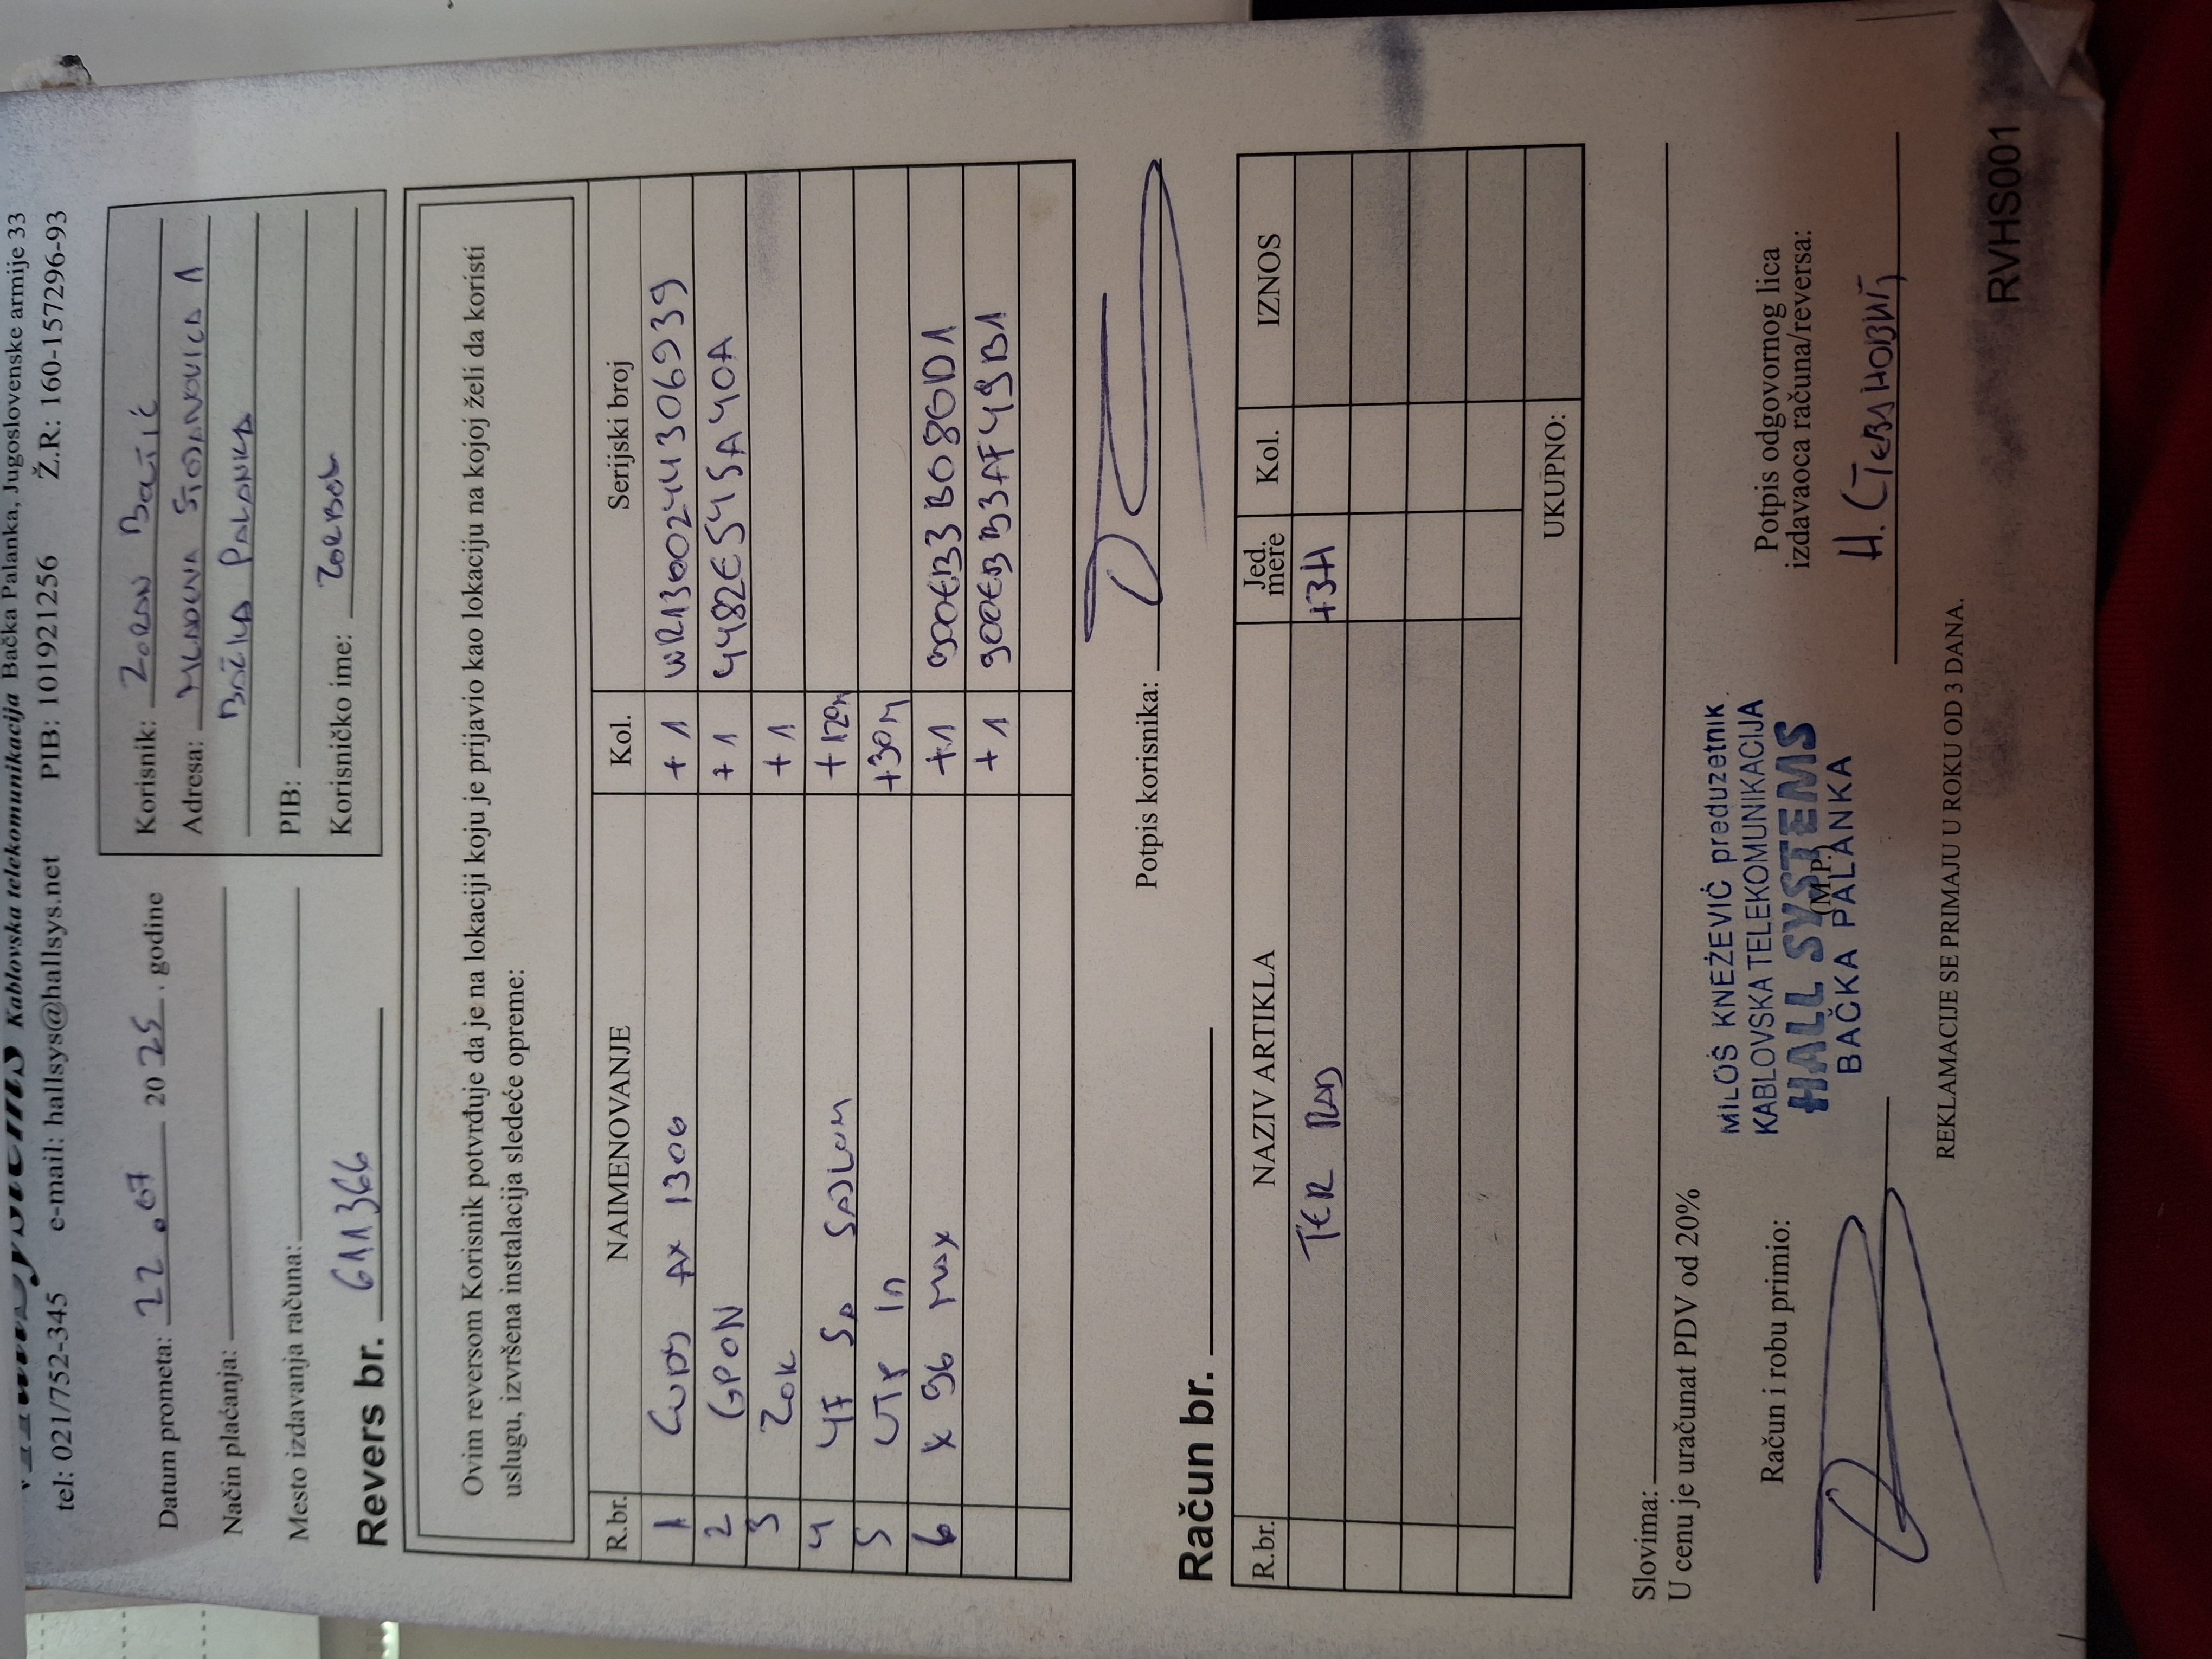 Kablovska telekomunikacija Bačka Palanka, Jugoslovenske armije 33
tel: 021/752-345 e-mail: hallsys@hallsys.net PIB: 101921256 Ž.R: 160-157296-93
Datum prometa: 22.07 2025. godine
Način plaćanja:
Mesto izdavanja računa:
Revers br. 611366
Korisnik: ZORAN
Adresa: MLADENA STOJANOVICA 1
BAČKA PALANKA
PIB:
Korisničko ime: ZORBOL
Ovim reversom Korisnik potvrđuje da je na lokaciji koju je prijavio kao lokaciju na kojoj želi da koristi
uslugu, izvršena instalacija sledeće opreme:
R.br. NAIMENOVANJE Kol. Serijski broj
1 CUDY AX 1306 +1 WR1360244306939
2 GPON +1 4482E5415A40A
3 ZOK +1
4 4F SA SAJLOM +120m
5 UTP In +30m
6 X 96 MAX +1 900EB3B08GD1
+1 900EB33AF49B1
Potpis korisnika:
Račun br.
R.br. NAZIV ARTIKLA Jed. mere Kol. IZNOS
TER RAD +3H
UKUPNO:
Slovima:
U cenu je uračunat PDV od 20%
Račun i robu primio:
MILOŠ KNEŽEVIĆ preduzetnik
KABLOVSKA TELEKOMUNIKACIJA
HALL SYSTEMS
(M.P.)
BAČKA PALANKA
Potpis odgovornog lica
izdavaoca računa/reversa:
Н. Стевановић
REKLAMACIJE SE PRIMAJU U ROKU OD 3 DANA.
RVHS001